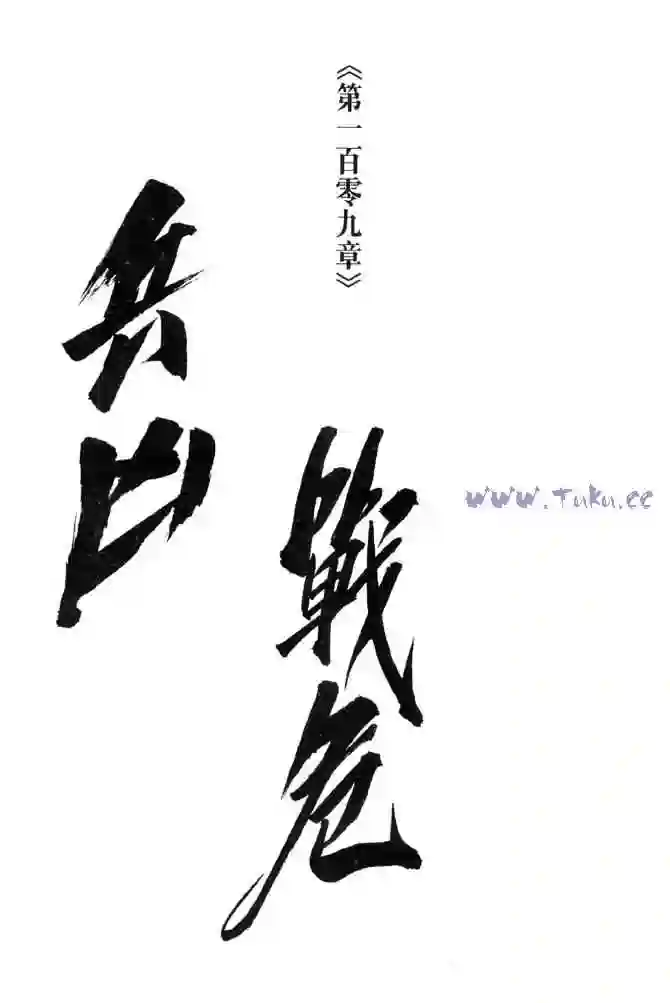 《第一百零九章》
兵凶
戰危
www.Tuku.cc